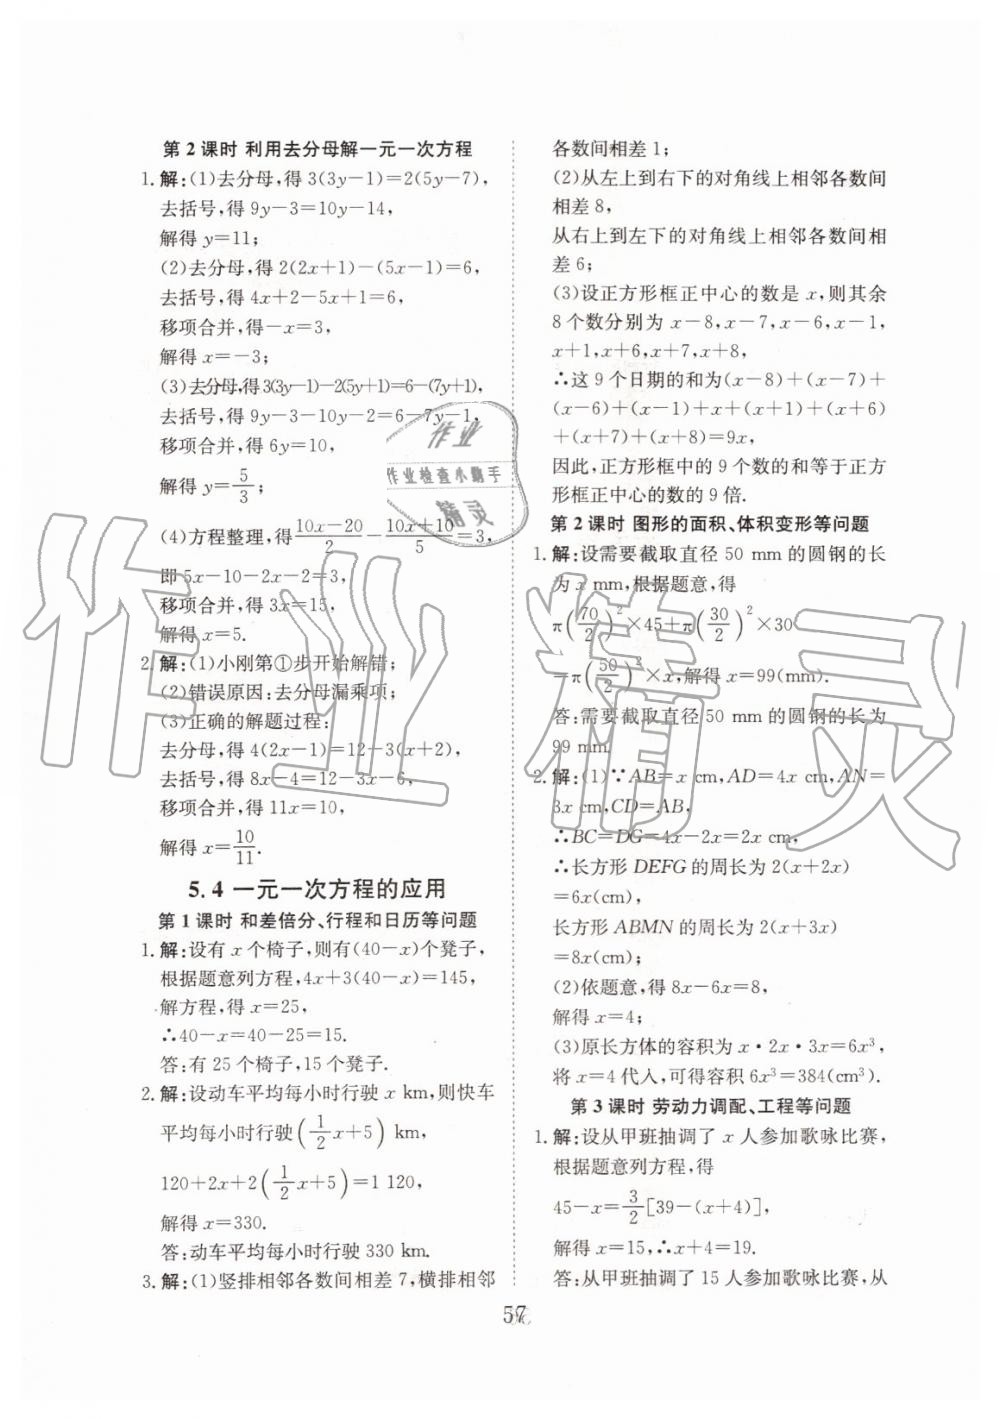 第 2 课时 利用去分母解一元一次方程
1. 解:(1)去分母,得 3(3y－1)=2(5y－7),
去括号,得 9y－3=10y－14,
解得 y=11;
(2)去分母,得 2(2x+1)－(5x－1)=6,
去括号,得 4x+2－5x+1=6,
移项合并,得－x=3,
解得 x=－3;
(3)去分母,得 3(3y－1)－2(5y+1)=6－(7y+1),
去括号,得 9y－3－10y－2=6－7y－1,
移项合并,得 6y=10,
解得 y=5/3;
(4)方程整理,得 (10x－20)/2－(10x+10)/5=3,
即 5x－10－2x－2=3,
移项合并,得 3x=15,
解得 x=5.
2. 解:(1)小刚第①步开始解错;
(2)错误原因:去分母漏乘项;
(3)正确的解题过程:
去分母,得 4(2x－1)=12－3(x+2),
去括号,得 8x－4=12－3x－6,
移项合并,得 11x=10,
解得 x=10/11.
5.4 一元一次方程的应用
第 1 课时 和差倍分、行程和日历等问题
1. 解:设有 x 个椅子,则有(40－x)个凳子,
根据题意列方程,4x+3(40－x)=145,
解方程,得 x=25,
∴40－x=40－25=15.
答:有 25 个椅子,15 个凳子.
2. 解:设动车平均每小时行驶 x km,则快车
平均每小时行驶(1/2x+5) km,
120+2x+2(1/2x+5)=1 120,
解得 x=330.
答:动车平均每小时行驶 330 km.
3. 解:(1)竖排相邻各数间相差 7,横排相邻
各数间相差 1;
(2)从左上到右下的对角线上相邻各数间
相差 8,
从右上到左下的对角线上相邻各数间相
差 6;
(3)设正方形框正中心的数是 x,则其余
8 个数分别为 x－8,x－7,x－6,x－1,
x+1,x+6,x+7,x+8,
∴这 9 个日期的和为(x－8)+(x－7)+
(x－6)+(x－1)+x+(x+1)+(x+6)
+(x+7)+(x+8)=9x,
因此,正方形框中的 9 个数的和等于正方
形框正中心的数的 9 倍.
第 2 课时 图形的面积、体积变形等问题
1. 解:设需要截取直径 50 mm 的圆钢的长
为 x mm,根据题意,得
π(70/2)²×45+π(30/2)²×30
=π(50/2)²×x,解得 x=99(mm).
答:需要截取直径 50 mm 的圆钢的长为
99 mm.
2. 解:(1)∵AB=x cm,AD=4x cm,AN=
3x cm,CD=AB,
∴BC=DG=4x－2x=2x cm,
∴长方形 DEFG 的周长为 2(x+2x)
=6x(cm),
长方形 ABMN 的周长为 2(x+3x)
=8x(cm);
(2)依题意,得 8x－6x=8,
解得 x=4;
(3)原长方体的容积为 x·2x·3x=6x³,
将 x=4 代入,可得容积 6x³=384(cm³).
第 3 课时 劳动力调配、工程等问题
1. 解:设从甲班抽调了 x 人参加歌咏比赛,
根据题意列方程,得
45－x=3/2[39－(x+4)],
解得 x=15,∴x+4=19.
答:从甲班抽调了 15 人参加歌咏比赛,从
57
作业
作业检查小助手
精灵
作业精灵